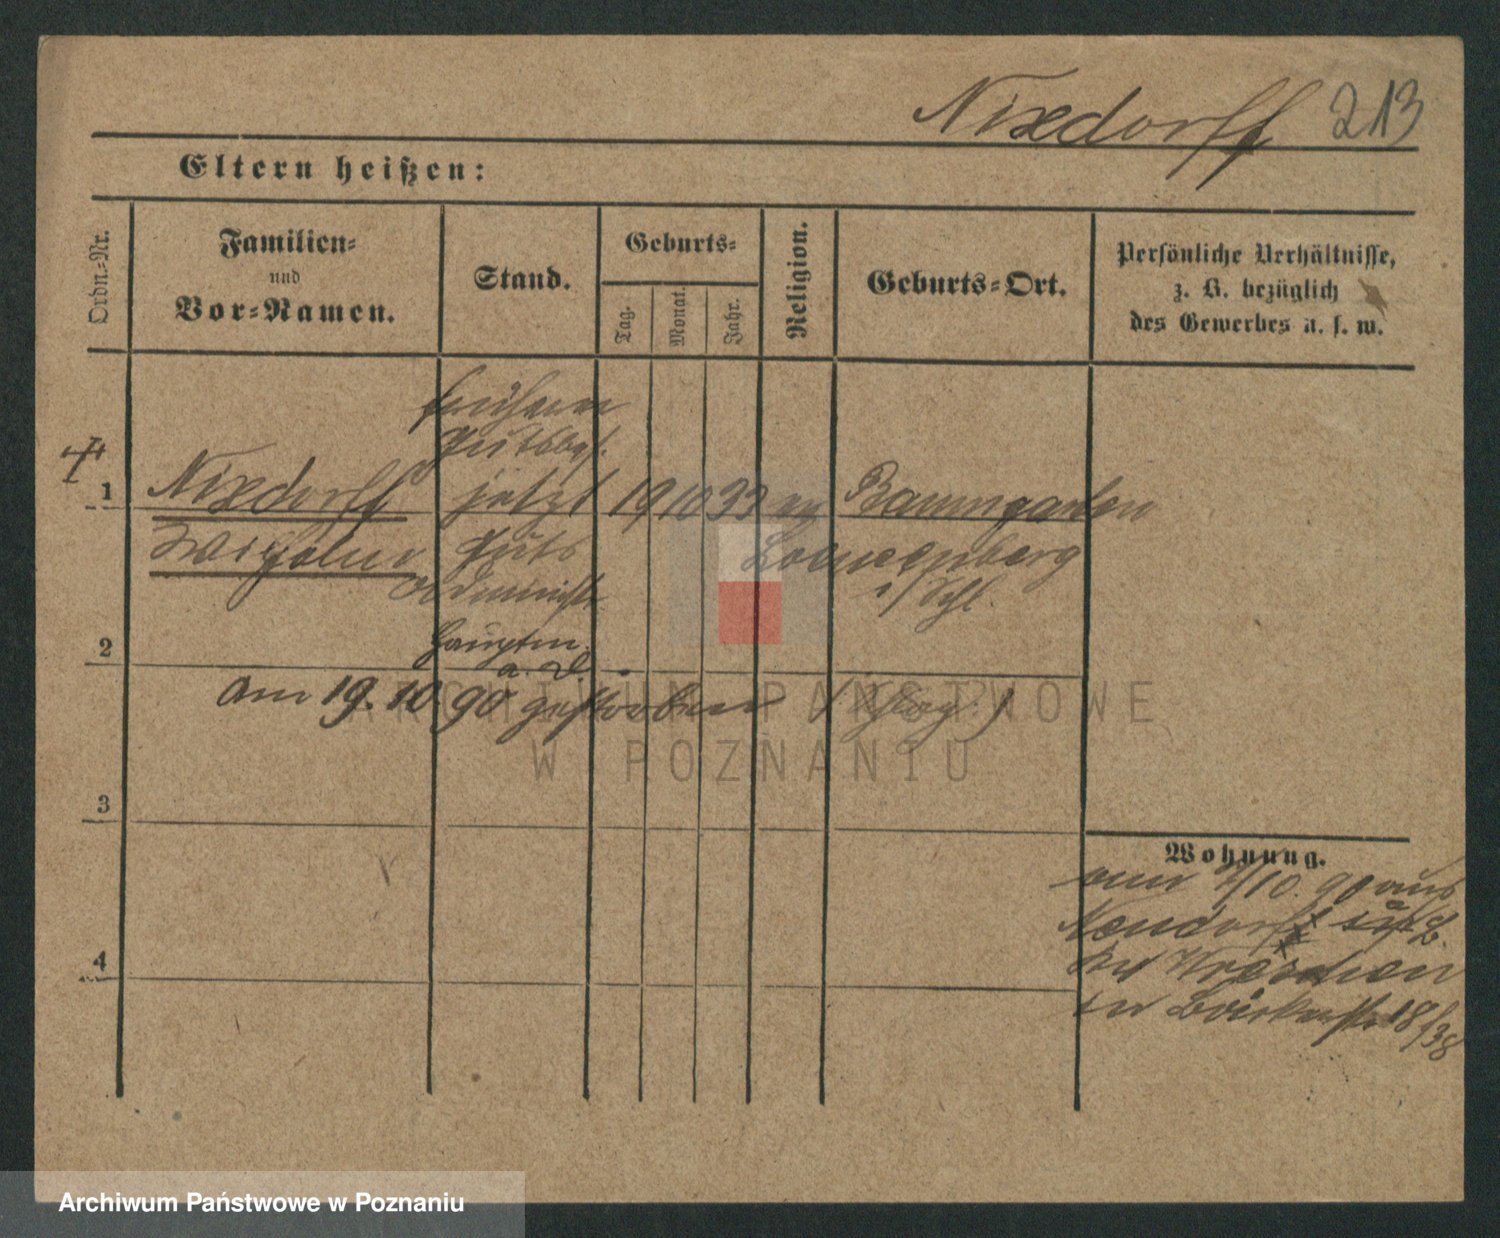 Nixdorff 213
Eltern heißen:
Ordn.-Nr.
Familien-
und
Vor-Namen.
Stand.
Geburts-
Tag.
Monat.
Jahr.
Religion.
Geburts-Ort.
Persönliche Verhältnisse,
z. B. bezüglich
des Gewerbes u. s. w.
früherer
Gutsbes.
1 Nixdorff jetzt 19 10 33 ev Baumgarten
Wilhelm Guts
Administr.
i/Schl.
Hauptm.
a. D.
2
am 19. 10 90 gestorben
3
4
Wohnung.
am 1/10. 90 aus
18/38
ARCHIWUM PAŃSTWOWE
W POZNANIU
Archiwum Państwowe w Poznaniu